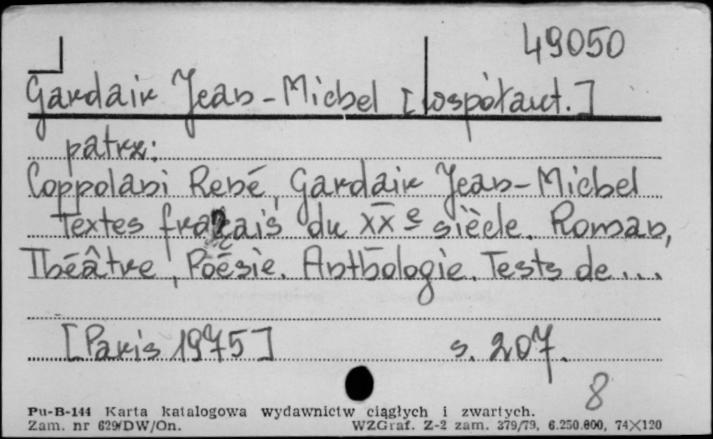 49050
Gardair Jean-Michel [współaut.]
patrz:
Coppolani René, Gardair Jean-Michel
Textes français du XXe siècle. Roman,
Théâtre, Poésie. Anthologie. Tests de...
[Paris 1975] s. 207.
8
Pu-B-144 Karta katalogowa wydawnictw ciągłych i zwartych.
Zam. nr 629/DW/On. WZGraf. Z-2 zam. 379/79, 6.250.000, 74X120